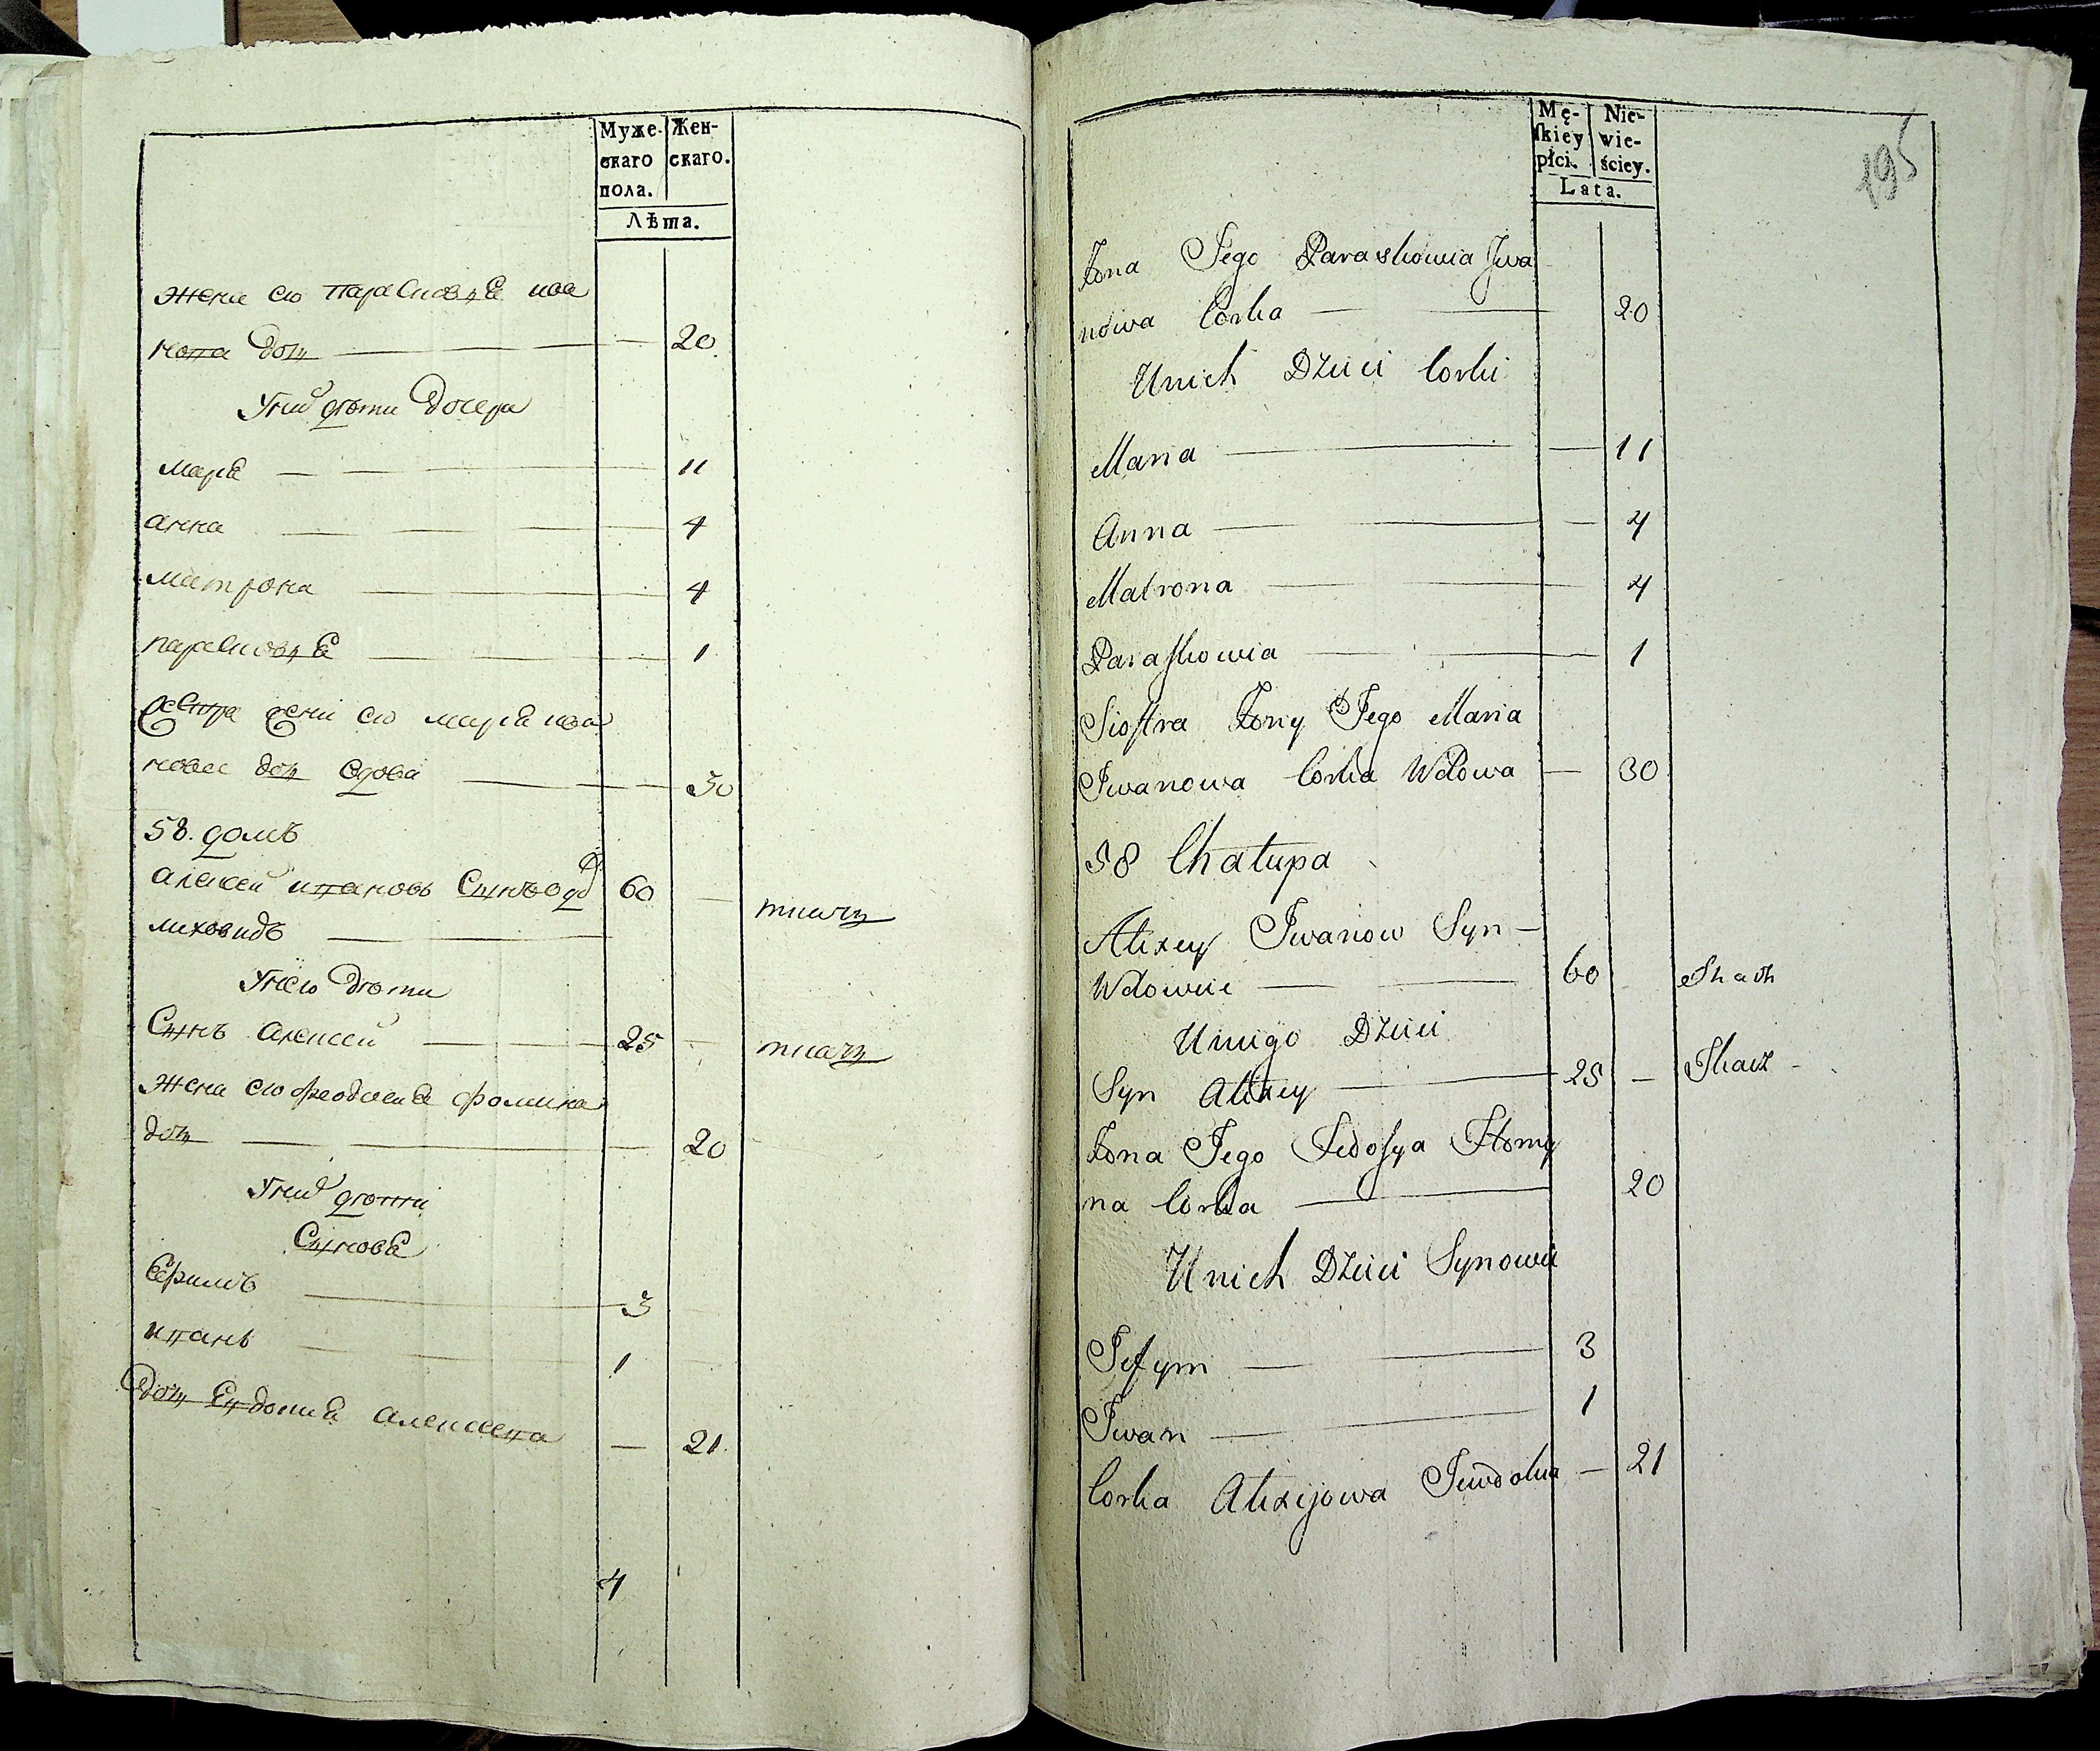 Муже-
скаго
пола.
Жен-
скаго.
Лѣта.
жена его парасковѣя ива
нова дочь — 20
У них дѣти дочера
марѣя — 11
анна — 4
матрона — 4
парасковѣя — 1
Сестра жени его марѣя ива
нова дочь вдова — 30
58. домъ
алексей ивановъ Сынъ вд 60 — ткачъ
лиховидъ —
У него дѣти
Сынъ алексей — 25 — ткачъ
жена его феодосѣя фомина
дочь — 20
У них дѣти
Сыновѣя
Ефимъ — 3
иванъ — 1
дочь Евдокиѣя алексеева — 21
4
Mę-
skiey
płci.
Nie-
wie-
ściey.
Lata.
195
Żona Jego Paraskowia Jwa
nowa Corka — 20
Unich Dzieci Corki
Maria — 11
Anna — 4
Matrona — 4
Paraskowia — 1
Siostra Żony Jego Maria
Jwanowa Corka Wdowa — 30
58 Chałupa
Alexey Jwanow Syn —
Wdowiec — 60 Tkacz
Uniego Dzieci
Syn Alexey — 25 — Tkacz
Żona Jego Fedosya Homy
na Corka — 20
Unich Dzieci Synowie
Jefym — 3
Jwan — 1
Corka Alexejowa Jewdokia — 21